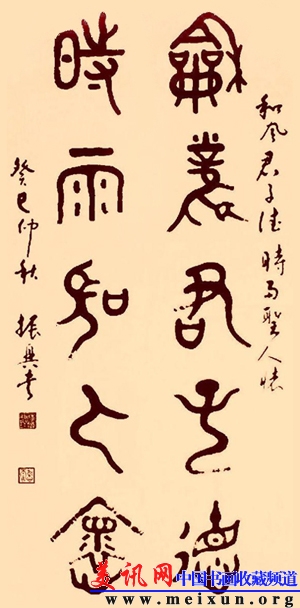 和风君子德 時雨聖人懷
龢風君子德
時雨聖人懷
癸巳仲秋 振興书
美讯网 中国书画收藏频道
www.meixun.org